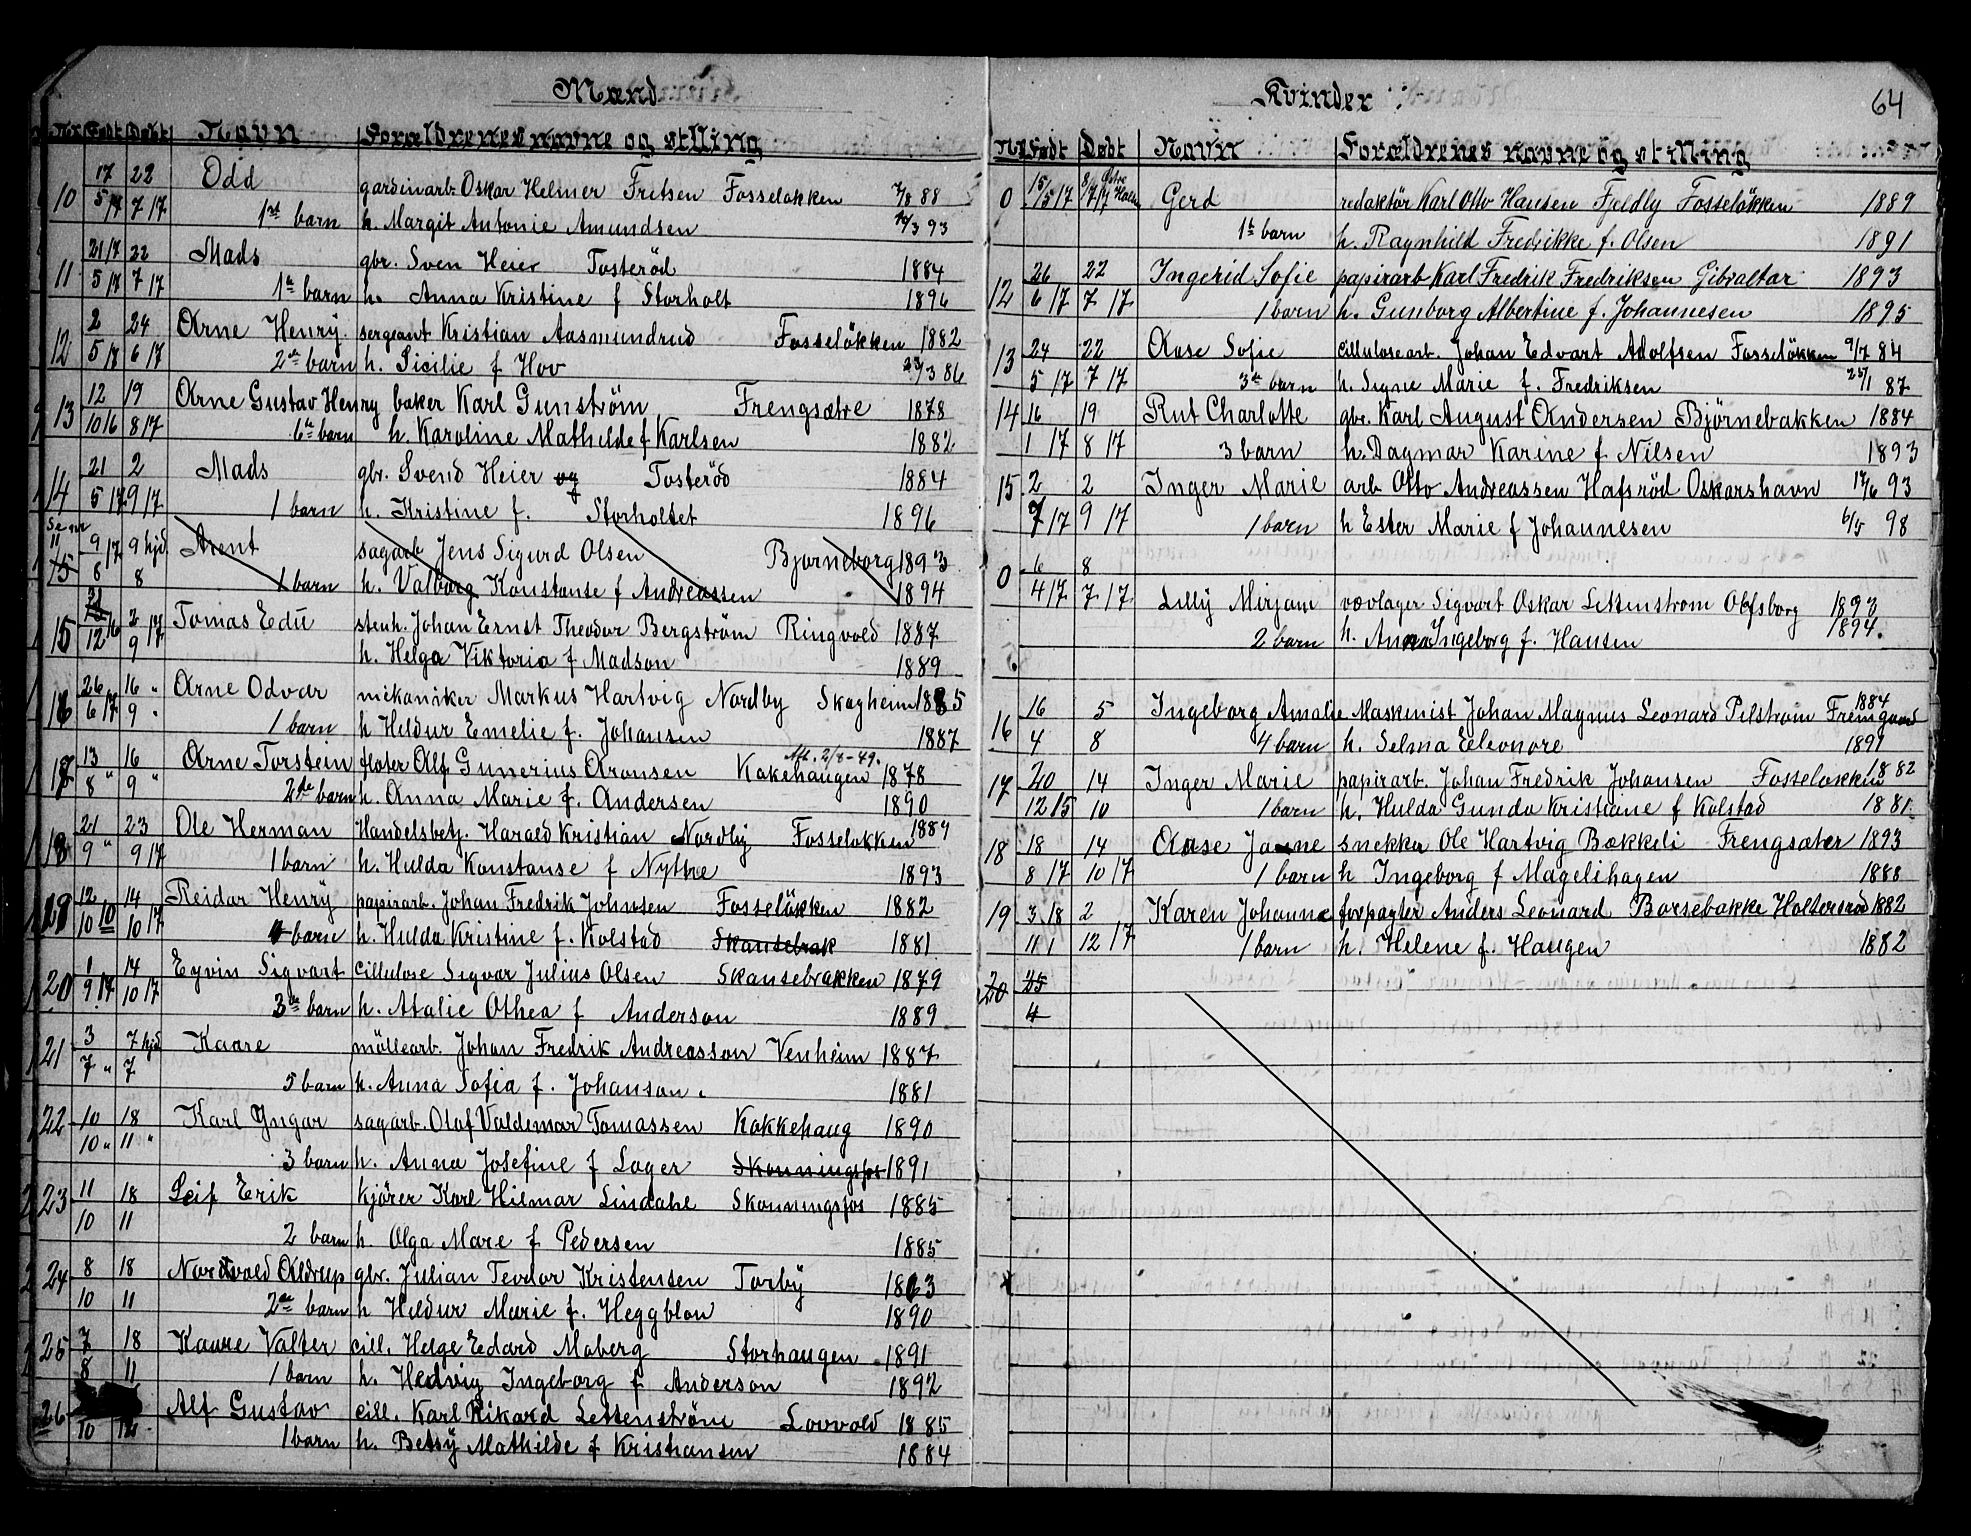 Mænd
Nr Født Døbt Navn Forældrenes navne og stilling
17 22 Odd gardinarb. Oskar Helmer Fritsen Fosseløkken 7/8 88
10 5 17 7 17 1st barn h. Margit Antonie Amundsen 14/3 93
21 17 22 Mads gbr. Sven Heier Tosterød 1884
11 5 17 7 17 1st barn h. Anna Kristine f Storholt 1896
2 24 Arne Henry. sergeant Kristian Aasmundrud Fosseløkken 1882
12 5 17 6 17 2det barn h. Sicilie f Hov 23/3 86
12 19 Arne Gustav Henry baker Karl Gunström Frengsætre 1878
13 10 16 8 17 6te barn h. Karoline Mathilde f Karlsen 1882
21 2 Mads gbr. Svend Heier og Tosterød 1884
14 5 17 9 17 1 barn h. Kristine f. Storholtet 1896
9 17 9 hjd Arent sagarb Jens Sigurd Olsen Bjørneborg 1893
15 8 8 1 barn h. Valborg Konstanse f Andreassen 1894
2 Tomas Edü stenh. Johan Ernst Theodor Bergström Ringvold 1887
15 12 16 9 17 h. Helga Viktoria f Madson 1889
26 16 " Arne Odvar mekaniker Markus Hartvig Nordby Skogheim 1885
16 6 17 9 " 1 barn h Heldur Emelie f. Johansen 1887
Aft. 2/8-49.
13 16 Arne Torstein fløter Alf Gunerius Aronsen Kokehaugen 1878
17 8 " 9 " 2de barn h. Anna Marie f. Andersen 1890
21 23 Ole Herman Handelsbetj. Harald Kristian Nordby Fosseløkken 1889
18 9 " 9 17 1 barn h. Hulda Konstanse f Nythe 1893
12 14 Reidar Henry papirarb. Johan Fredrik Johnsen Fosseløkken 1882
19 10 10 10 17 barn h. Hulda Kristine f. Kolstad Skansebak 1881
1 14 Eyvin Sigvart Cillulose Sigvar Julius Olsen Skansebakken 1879
20 9 17 10 17 3de barn h. Atalie Othea f Anderson 1889
3 7 hjd Kaare møllearb. Johan Fredrik Andreasson Venheim 1887
21 7 " 7 5 barn h. Anna Sofia f. Johanson. 1881
22 10 18 Karl Yngar sagarb. Olaf Valdemar Tomassen Kokkehaug 1890
10 " 11 " 3 barn h. Anna Josefine f Lager Skonningsfos 1891
23 11 18 Leif Erik kjører Karl Hilmar Lindahl Skonningsfos 1885
10 11 2 barn h. Olga Mare f Pedersen 1885
24 8 18 Nordvold Oldrup gbr. Julian Teodor Kristensen Torby 1863
10 11 2de barn h Heldur Marie f. Heggblon 1890
25 7 18 Kaare Valter cill. Helge Edard Moberg Storhaugen 1891
8 11 1 barn h. Hedvig Ingeborg f Anderson 1892
26 Alf Gustav cill. Karl Rikard Lettenström Lovvold 1885
10 1 barn h. Betsy Mathilde f Kristiansen 1884
64
Kvinder
Nr Født Døbt Navn Forældrenes navne og stilling
0 15/5 17 8/7 17 Gerd redaktør Karl Otto Hansen Fjeldly Fosseløkken 1889
1st barn h. Ragnhild Fredrikke f. Olsen 1891
26 22 Ingerid Sofie papirarb Karl Fredrik Fredriksen Gibraltar 1893
12 6 17 7 17 1 barn h. Gunborg Albertine f. Johannesen 1895
13 24 22 Aase Sofie cilluloseart. Johan Edvart Adolfsen Fosseløkken 9/7 84
5 17 7 17 3de barn h. Signe Marie f. Fredriksen 25/1 87
14 16 19 Rut Charlotte gbr. Karl August Andersen Bjørnebakken 1884
1 17 8 17 3 barn h. Dagmar Karine f Nilsen 1893
15 2 2 Inger Marie arb Otto Andreassen Hafsrød Oskarshavn 17/6 93
7 17 9 17 1 barn h Ester Marie f Johannesen 6/5 98
0 6 8
4 17 7 17 Lilly Mirjam vævlager Sigvart Oskar Lettenstrøm Olafsborg 1893
2 barn h. Anna Ingeborg f. Hansen 1894.
16 5 Ingeborg Amalie Maskinist Johan Magnus Leonard Pilstrøm Fremgaard 1884
16 4 8 4 barn h. Selma Eleonore 1891
17 20 14 Inger Marie papirarb. Johan Fredrik Johansen Fosseløkken 1882
12 15 10 1 barn h. Hulda Gunda Kristiane f Kolstad 1881
18 18 14 Aase Janne snekker Ole Hartvig Bækkeli Frengsæter 1893
8 17 10 17 1 barn h Ingeborg f Magelihagen 1888
19 3 18 2 Karen Johanne forpagter Anders Leonard Borsebakke Holtersrød 1882
11 1 12 17 1 barn h. Helene f. Haugen 1882
20 25
4